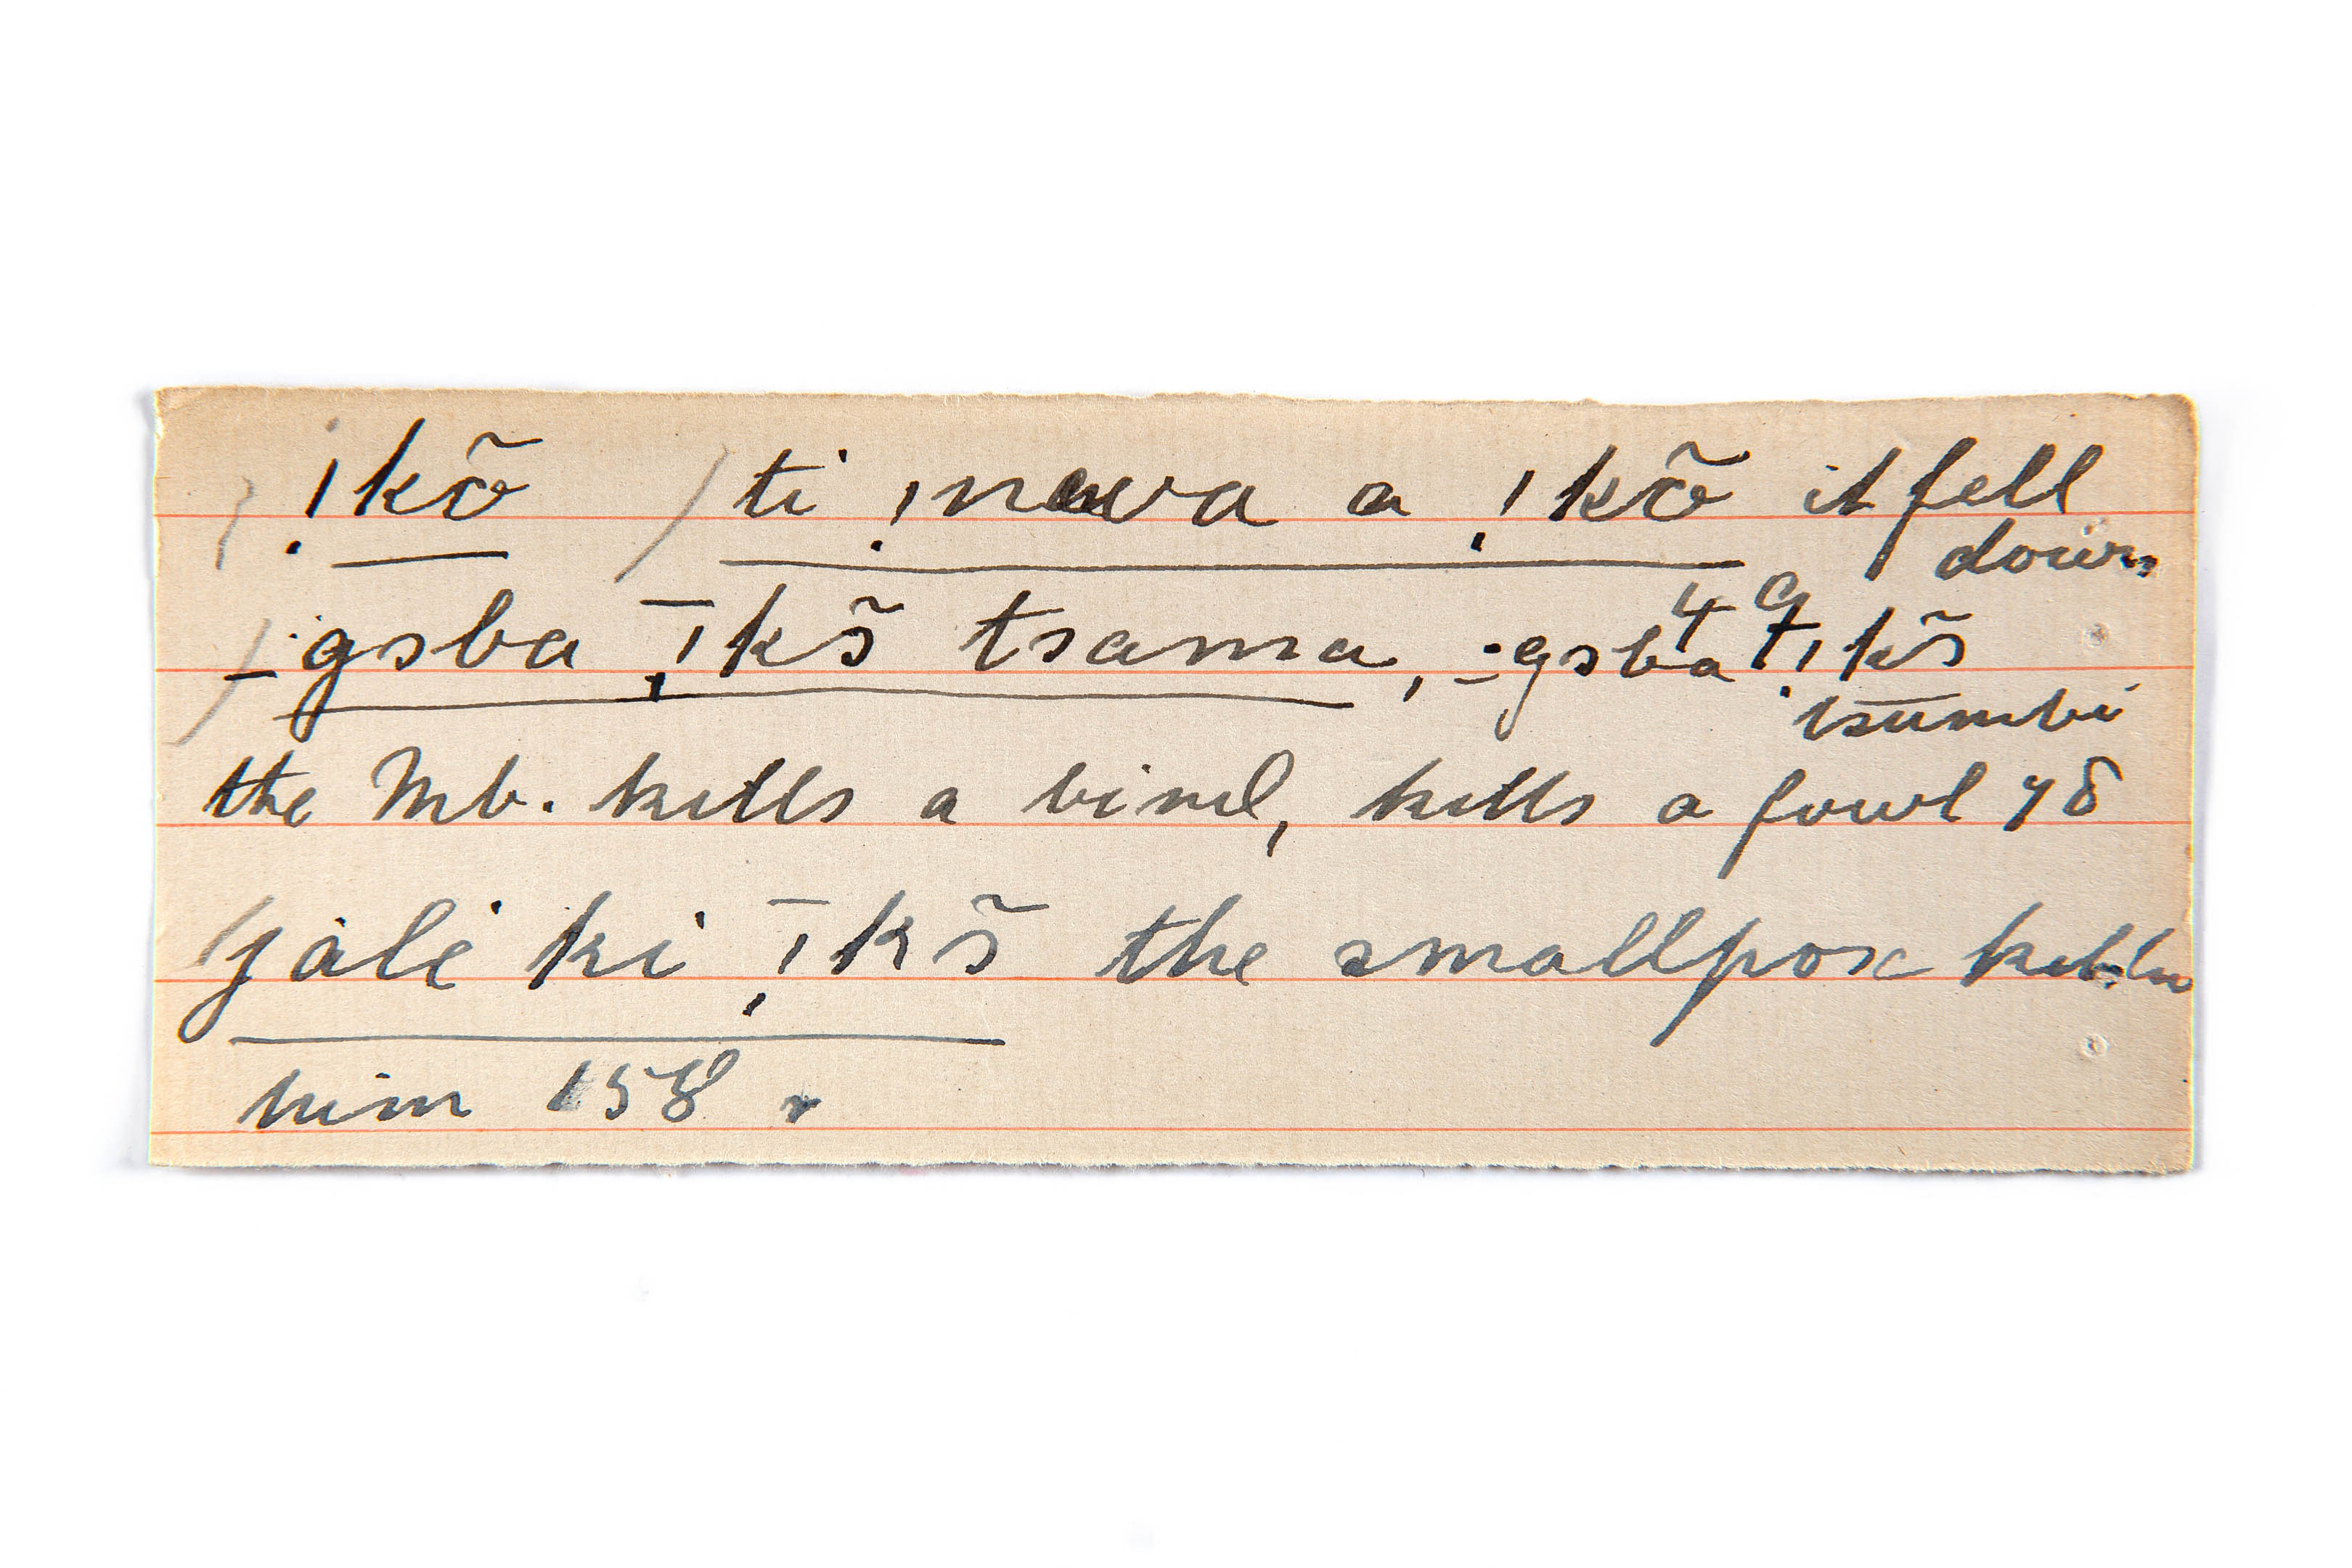 ị kõ ti ịnava a ị kõ it fell
down
49
gsba ị̄ kš̃ tsama, gsba ị̄ kš̃
tsūmbi
the Mb. kills a bird, kills a fowl 78
jale ki ị̄ kš̃ the smallpox kills
him 158